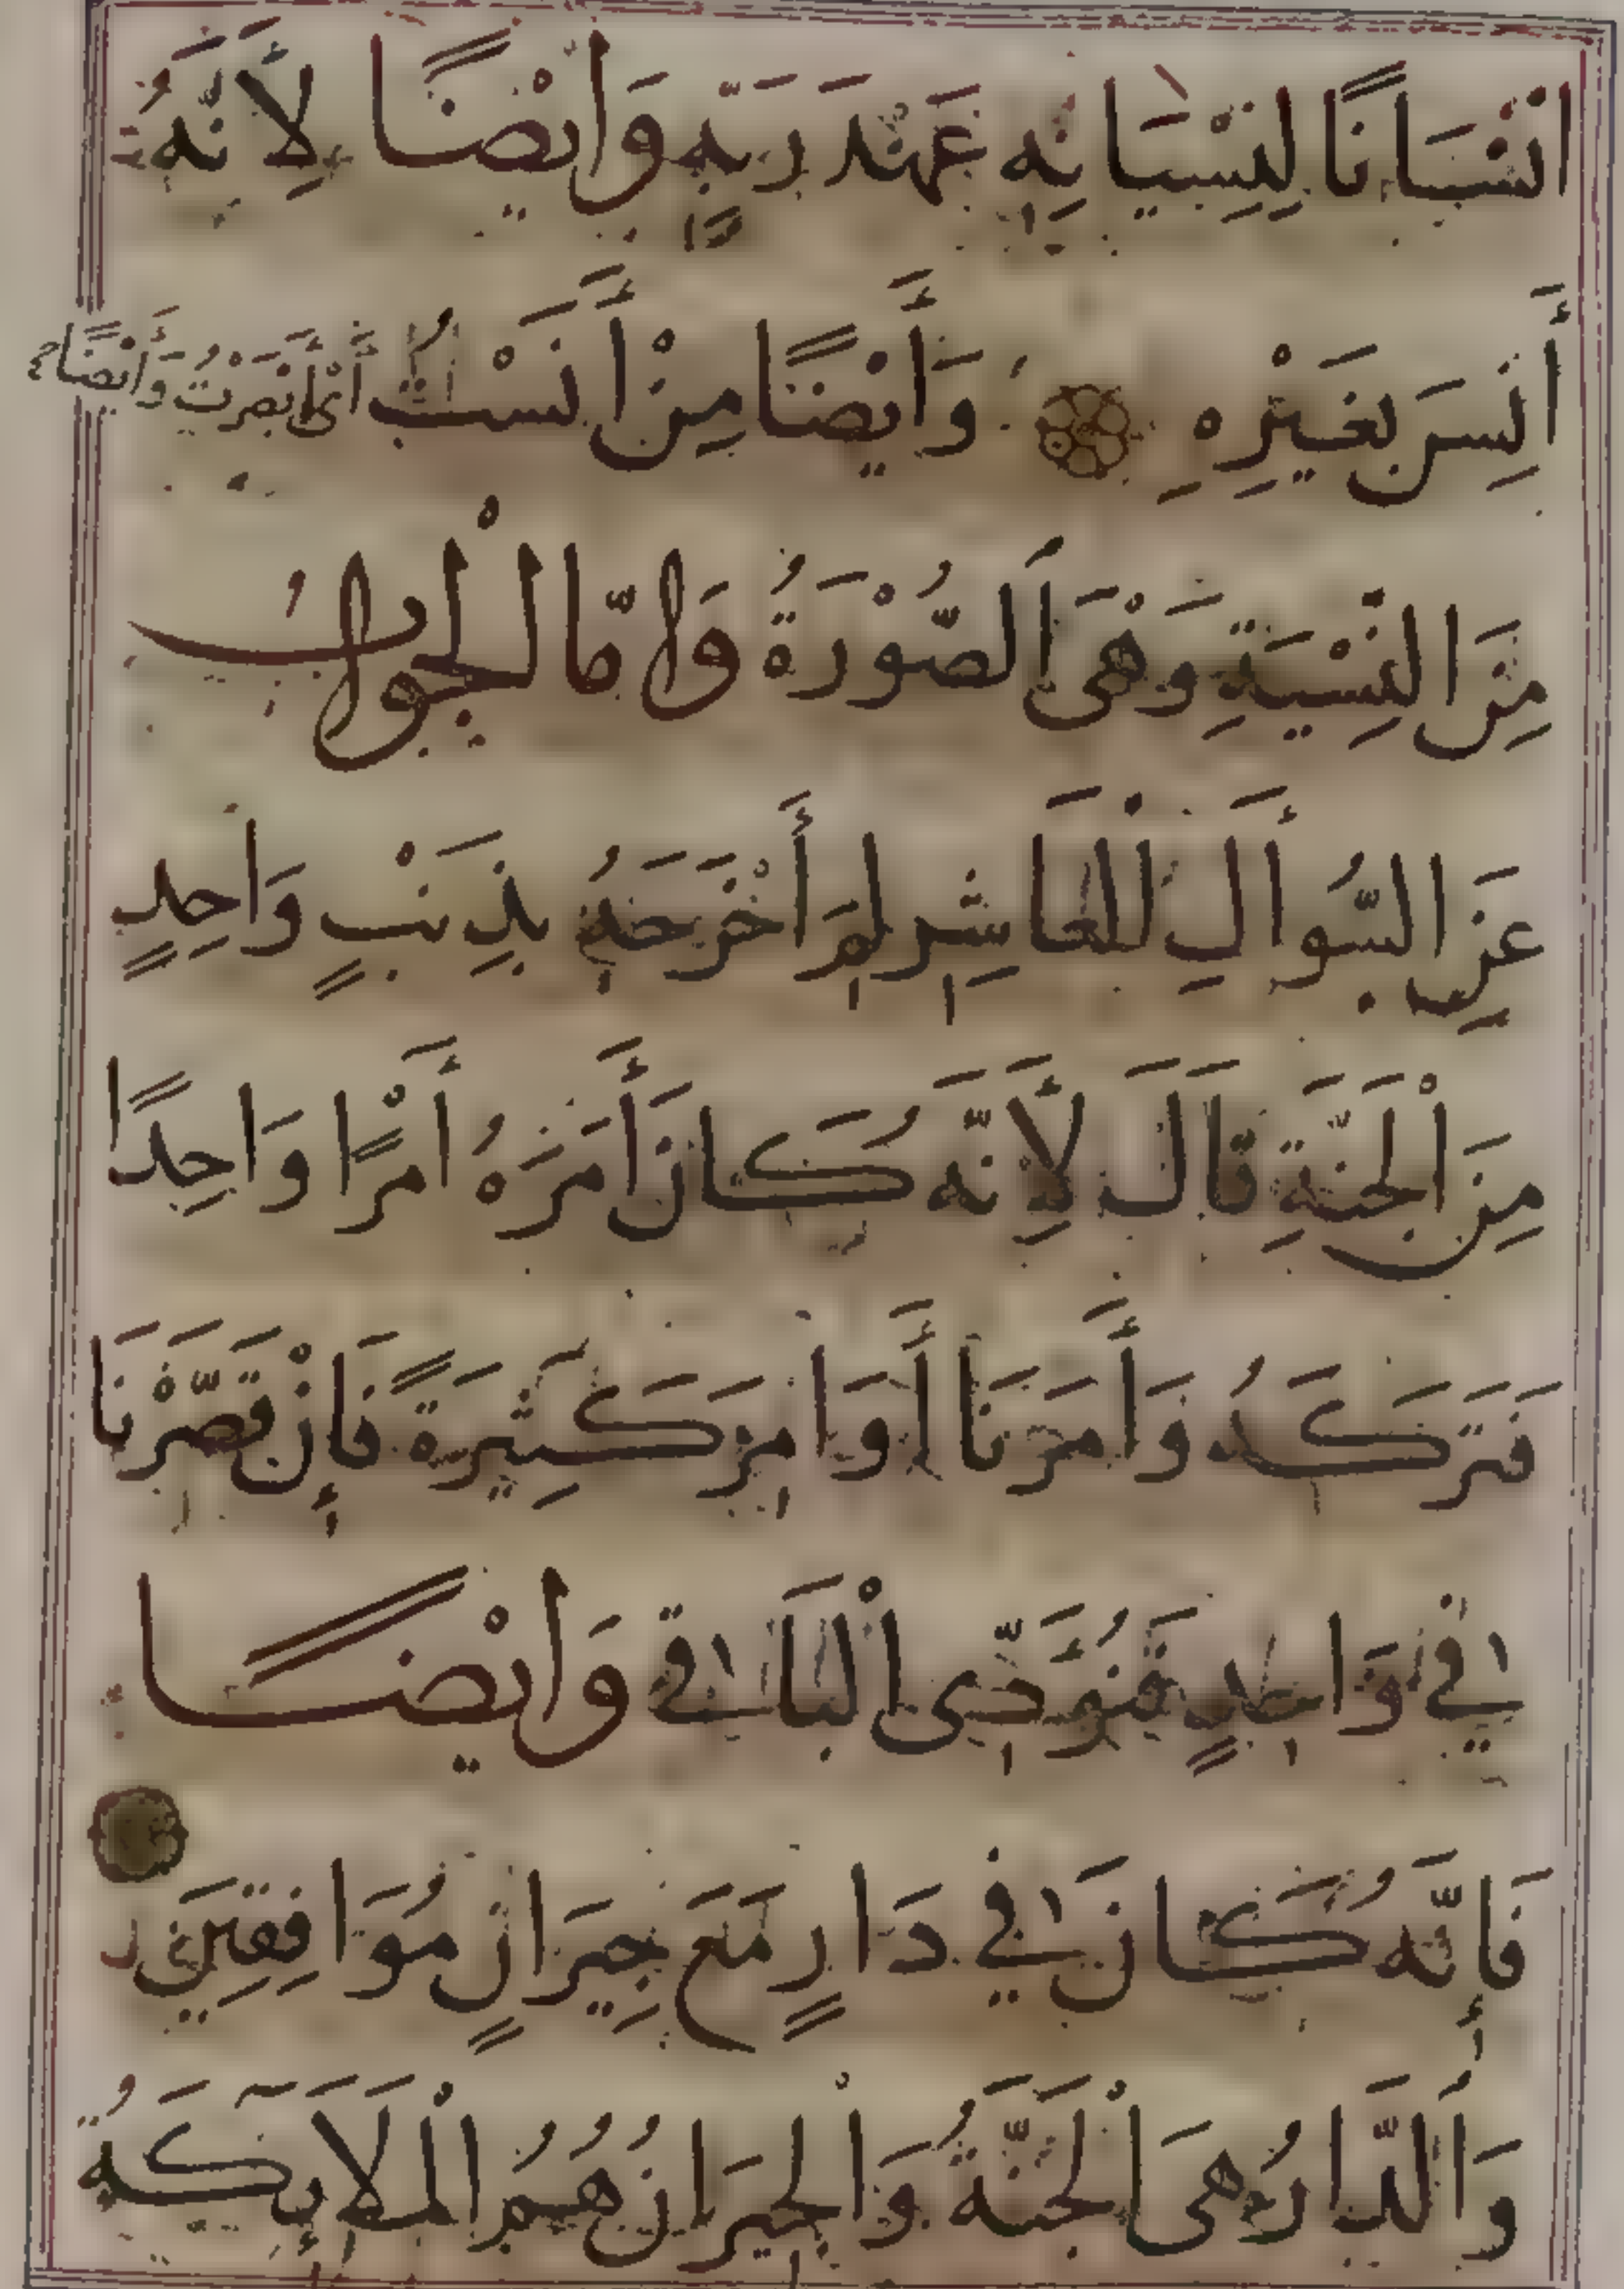 انْسَانًا لِنِسْيَانِهِ عَهْدَ رَبِّهِ وَايْضًا لِأَنَّهُ
أَنِسَ بِغَيْرِهِ وَأَيْضًا مِنْ أَنَسْتُ أَىْ أَبْصَرْتُ وَأَيْضًا
مِنَ النِّسْيَةِ وَهْىَ الصُّوْرَةُ وَامّا الْجوابُ
عَنِ السُّوأَلِ الْعَاشِرِ لِمَ أَخْرَجَهُ بِذِنْبٍ وَاحِدٍ
مِنَ الْجَنَّةِ قَالَ لِأَنَّهُ كَانَ أَمَرَهُ أَمْرًا وَاحِدًا
فَتَرَكَهُ وَأَمَرَنَا أَوَامِرَ كَثِيْرَةً فَإِنْ قَصَّرْنَا
فِي وَاحِدٍ فَنُؤَدِّى الْبَاقِي وَايْضًا
فَإِنَّهُ كَانَ فِي دَارٍ مَعَ جِيرَانٍ مُوَافِقِيَن
وَالدَّارُ هِىَ الْجَنَّةُ وَالْجِيَرانُ هُمُ الْمَلَايِكَةُ